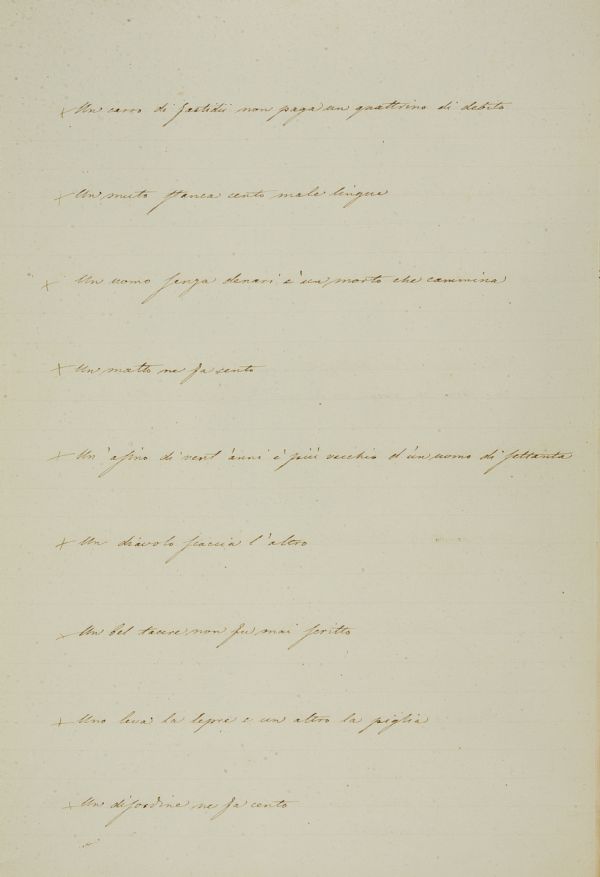 × Un carro di fastidii non paga un quattrino di debito
× Un muto stanca cento male lingue
× Un uomo senza denari è un morto che cammina
× Un matto ne fa cento
× Un'asino di vent'anni è più vecchio d'un uomo di settanta
× Un diavolo scaccia l'altro
× Un bel tacere non fu mai scritto
× Uno leva la lepre e un altro la piglia
× Un disordine ne fa cento